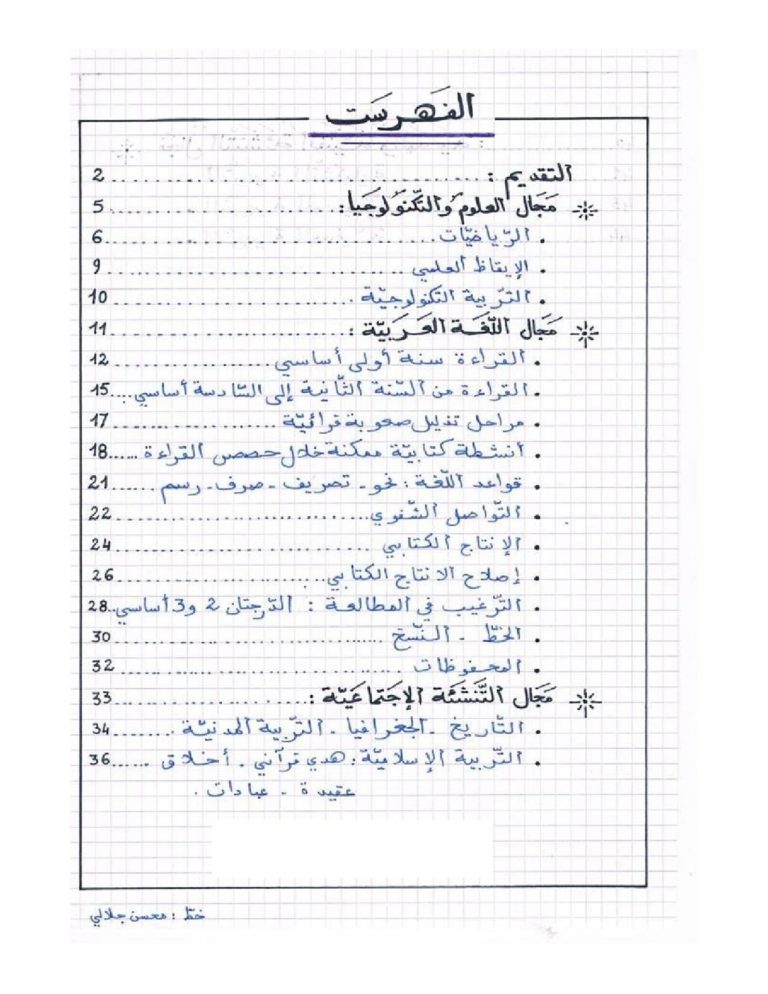 الفَهرسَت
التقديم : .......... 2
مَجَال العلوم والتّكنولوجيا : .......... 5
. الرّياضيّات .......... 6
. الإيقاظ العلمي .......... 9
. التّربية التكنولوجيّة .......... 10
مَجَال اللّغَة العَرَبيّة : .......... 11
. القراءة سنة أولى أساسي .......... 12
. القراءة من السّنة الثّانية إلى السّادسة أساسي .... 15
. مراحل تذليل صعوبة قرائيّة .......... 17
. أنشطة كتابيّة ممكنة خلال حصص القراءة ...... 18
. قواعد اللّغة : نحو - تصريف - صرف - رسم ...... 21
. التّواصل الشّفوي .......... 22
. الإنتاج الكتابي .......... 24
. إصلاح الانتاج الكتابي .......... 26
. التّرغيب في المطالعة : الدّرجتان 2 و 3 أساسي .. 28
. الخطّ - النّسخ .......... 30
. المحفوظات .......... 32
مَجَال التَّنشَئة الإجتماعَيّة : .......... 33
. التّاريخ - الجغرافيا - التّربية المدنيّة ........ 34
. التّربية الإسلاميّة : هدي قرآني - أخلاق ...... 36
عقيدة - عبادات .
خطّ : محسن جلالي